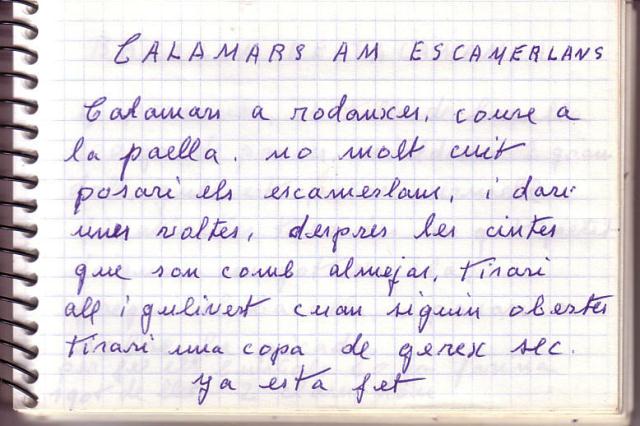 CALAMARS AM ESCAMERLANS
Calamars a rodanxes, coure a
la paella. no molt cuit
posari els escamerlans, i dari
unes voltes, despres les cintes
que son comb almejas, tirari
all i gulivert cuan siguin obertes
tirari una copa de gerex sec.
ya esta fet